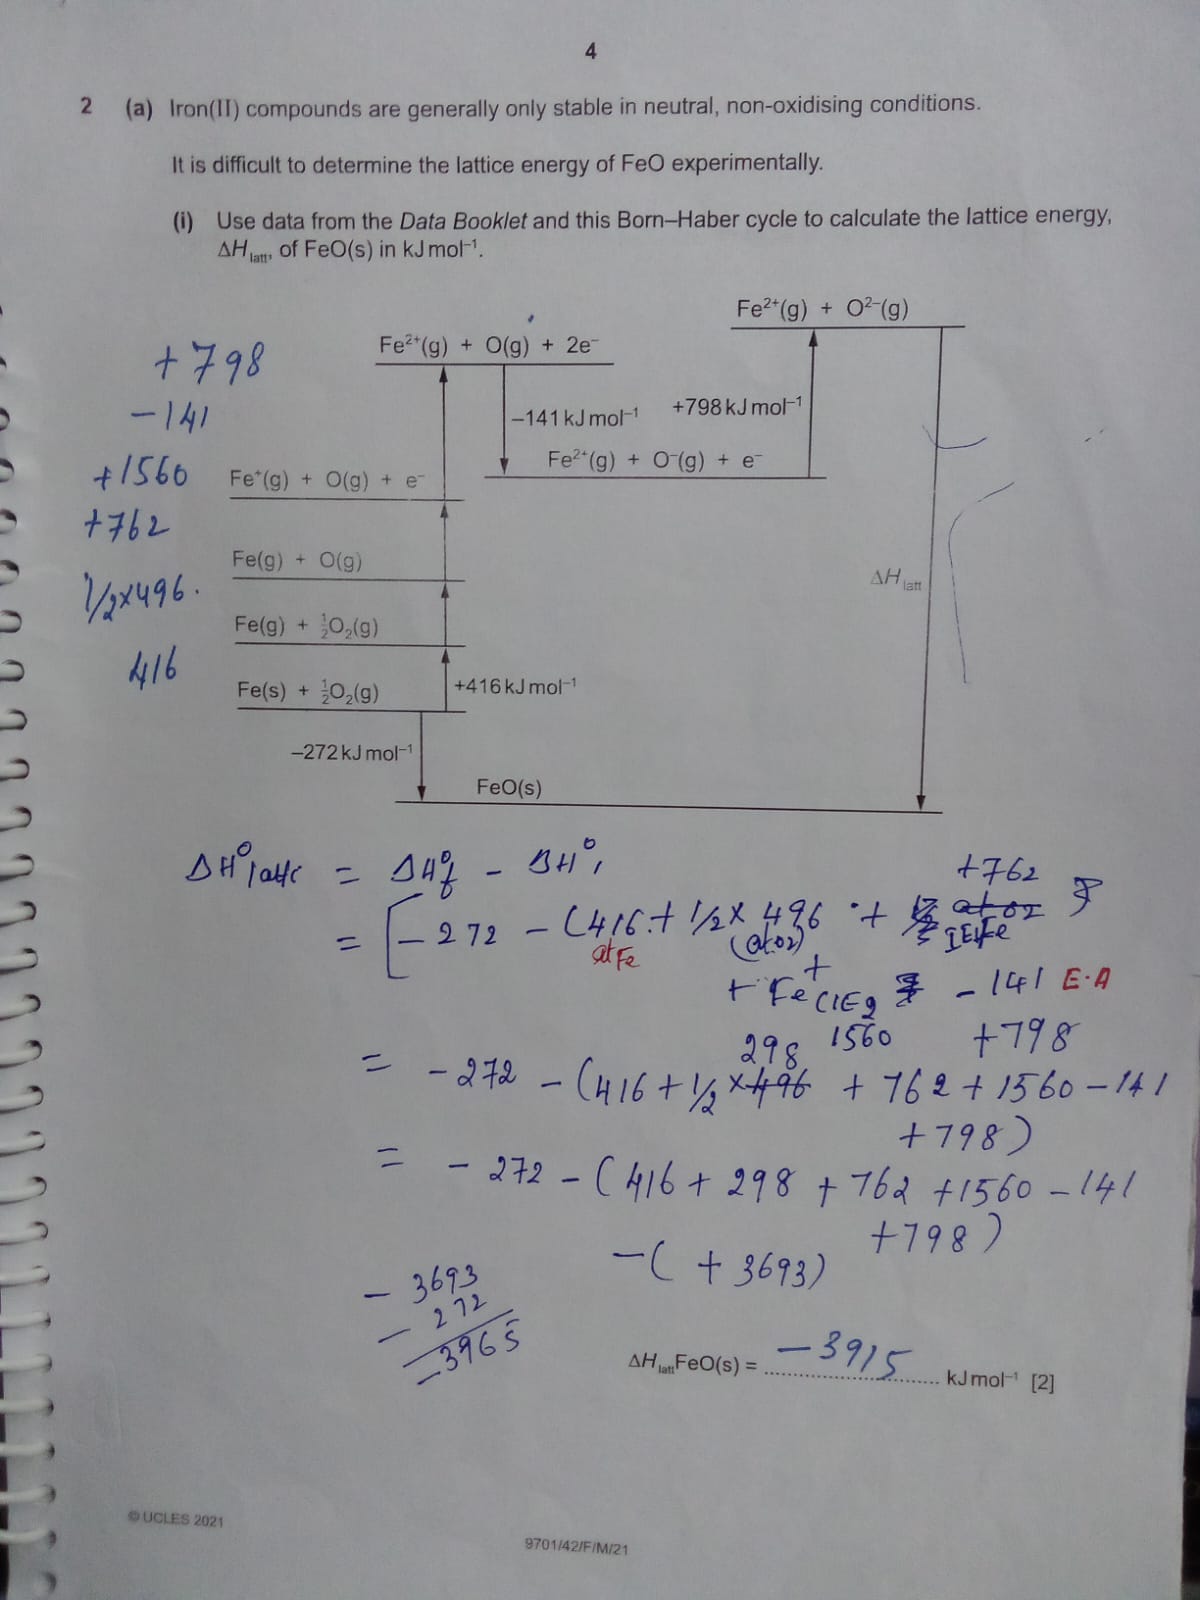 4
2 (a) Iron(II) compounds are generally only stable in neutral, non-oxidising conditions.
It is difficult to determine the lattice energy of FeO experimentally.
(i) Use data from the Data Booklet and this Born–Haber cycle to calculate the lattice energy,
ΔH latt, of FeO(s) in kJ mol⁻¹.
Fe²⁺(g) + O²⁻(g)
Fe²⁺(g) + O(g) + 2e⁻
+798
–141
–141 kJ mol⁻¹
+798 kJ mol⁻¹
Fe²⁺(g) + O⁻(g) + e⁻
+1560
Fe⁺(g) + O(g) + e⁻
+762
Fe(g) + O(g)
ΔH latt
1/2×496.
Fe(g) + ½O₂(g)
416
Fe(s) + ½O₂(g)
+416 kJ mol⁻¹
–272 kJ mol⁻¹
FeO(s)
ΔH°latt = ΔH°f – ΔH°₁
+762
= [–272 – (416 + 1/2 × 496 +
at Fe
(at O2)
IE Fe
+ Fe⁺ (IE2 – 141 E·A
298 1560 +798
= –272 – (416 + 1/2 ×496 + 762 + 1560 – 141
+798)
= –272 – (416 + 298 + 762 +1560 –141
+798)
–( + 3693)
– 3693
– 272
–3965
ΔH latt FeO(s) = –3915 kJ mol⁻¹ [2]
© UCLES 2021
9701/42/F/M/21